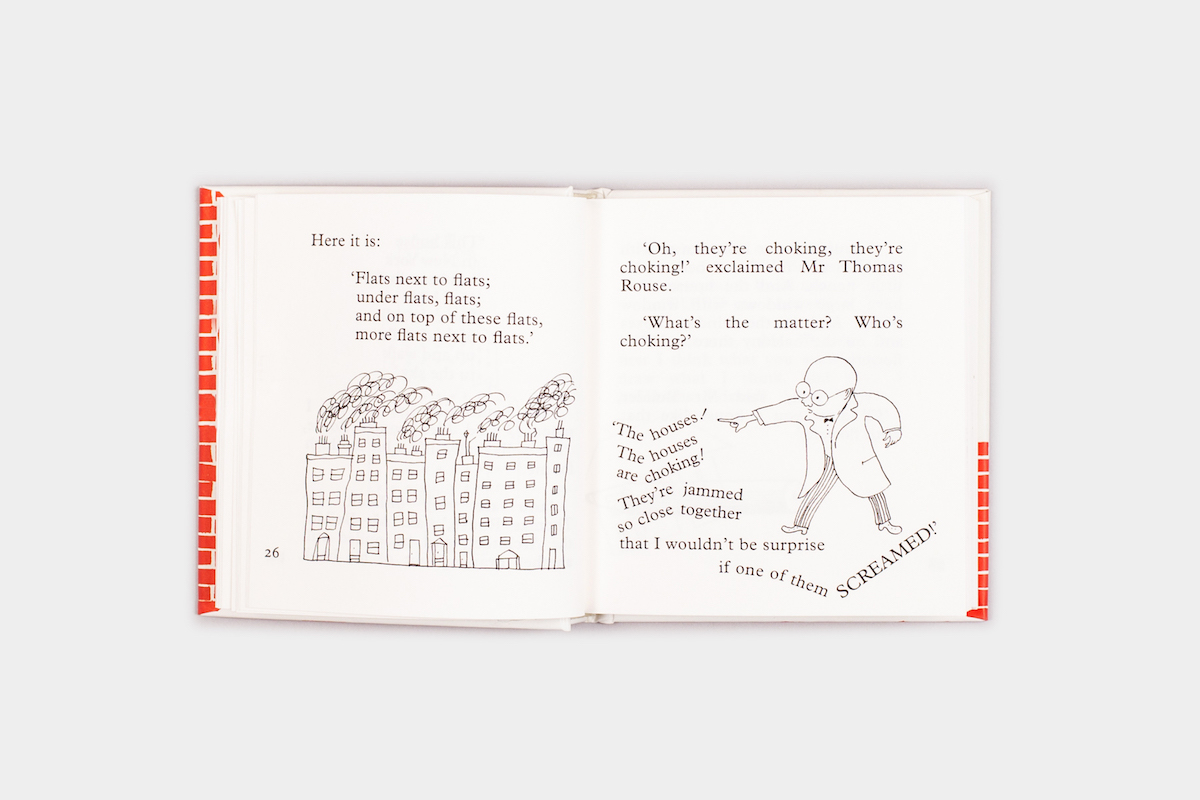 Here it is:
‘Flats next to flats;
under flats, flats;
and on top of these flats,
more flats next to flats.’
26
‘Oh, they’re choking, they’re
choking!’ exclaimed Mr Thomas
Rouse.
‘What’s the matter? Who’s
choking?’
‘The houses!
The houses
are choking!
They’re jammed
so close together
that I wouldn’t be surprise
if one of them SCREAMED!’